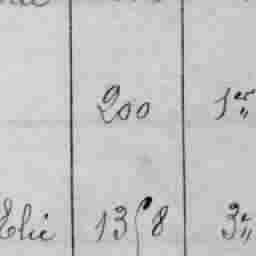 200 1er „
Elie 13 8 3e „